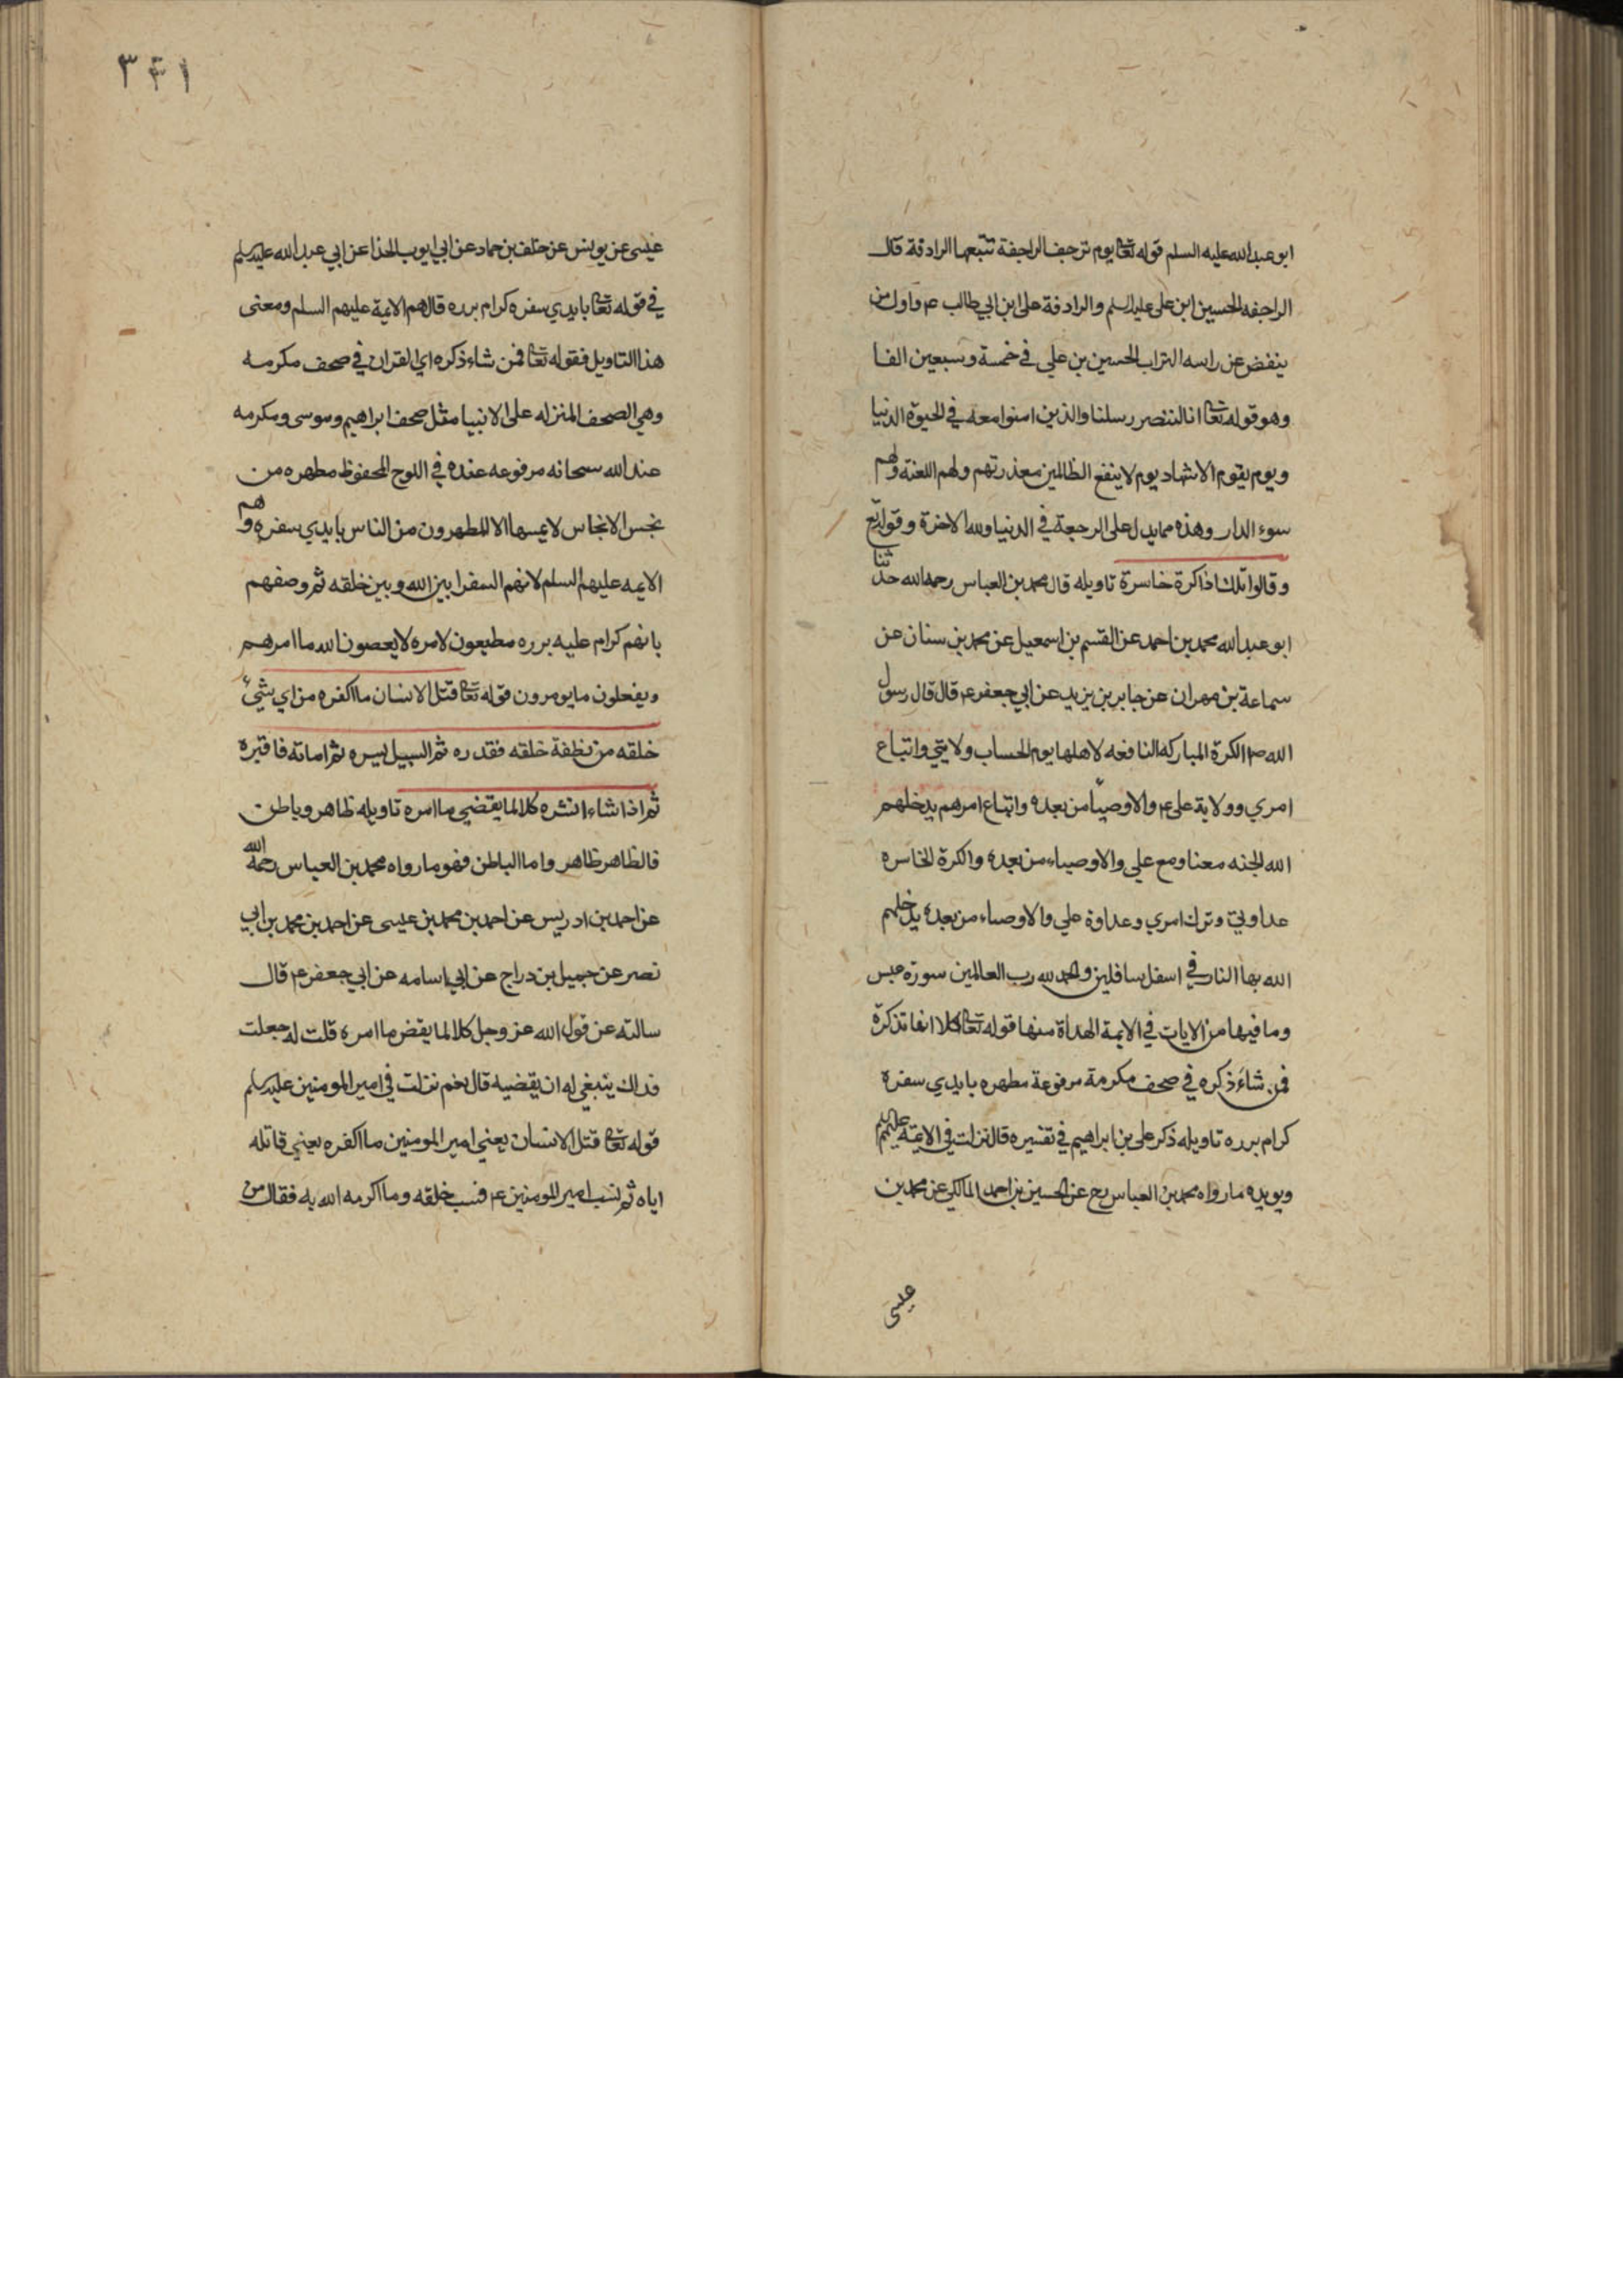 ابو عبدالله عليه السلم قوله تعا يوم ترجف الراجفة تتبعها الرادفة قال
الراجفه الحسين ابن على عليه السلم والرادفة على ابن ابي طالب ع واول من
ينفض عن راسه التراب الحسين بن علي في خمسة وسبعين الفا
وهو قوله تعا انا لننصر رسلنا والذين امنوا معه في الحيوة الدنيا
ويوم يقوم الاشهاد يوم لا ينفع الظالمين معذرتهم ولهم اللعنه ولهم
سوء الدار وهذه مما يدل على الرجعة في الدنيا ولله الاخرة وقوله تع
وقالوا تلك اذا كرة خاسرة تاويله قال محمد بن العباس رحمه الله حدثنا
ابو عبد الله محمد بن احمد عن القسم بن اسمعيل عن محمد بن سنان عن
سماعة بن مهران عن جابر بن يزيد عن ابي جعفر ع قال قال رسول
الله ص الكرة المباركه النافعه لاهلها يوم الحساب ولايتي واتباع
امري وولاية على ع والاوصيا من بعده واتباع امرهم يدخلهم
الله الجنه معنا ومع علي والاوصياء من بعده والكرة الخاسره
عداوتي وترك امري وعداوة علي والاوصياء من بعده يدخلهم
الله بها النار في اسفل سافلين والحمد لله رب العالمين سورة عبس
وما فيها من الايات في الايمة الهداة منها قوله تعا كلا انها تذكرة
فمن شاء ذكره في صحف مكرمة مرفوعة مطهره بايدي سفرة
كرام برره تاويله ذكر على بن ابراهيم في تفسيره قال نزلت في الايمة عليهم
ويويده ما رواه محمد بن العباس رح عن الحسين بن احمد المالكي عن محمد بن
عيسى
٣٤١
عيسى عن يونس عن خلف بن حماد عن ابي ايوب الحذا عن ابي عبد الله عليه السلم
في قوله تعا بايدي سفره كرام برره قال هم الايمة عليهم السلم ومعنى
هذا التاويل فقوله تعا فمن شاء ذكره اي القران في صحف مكرمه
وهي الصحف المنزله على الانبيا مثل صحف ابراهيم وموسى ومكرمه
عند الله سبحانه مرفوعه عنده في اللوح المحفوظ مطهره من
نجس الانجاس لا يمسها الا المطهرون من الناس بايدي سفره وهم
الايمه عليهم السلم لانهم السفرا بين الله وبين خلقه ثم وصفهم
بانهم كرام عليه برره مطيعون لامره لا يعصون الله ما امرهم
ويفعلون ما يومرون قوله تعا قتل الانسان ما اكفره من اي شيء
خلقه من نطفة خلقه فقدره ثم السبيل يسره ثم اماته فاقبره
ثم اذا شاء انشره كلا لما يقضي ما امره تاويله ظاهر وباطن
فالظاهر ظاهر واما الباطن فهو ما رواه محمد بن العباس رحمه الله
عن احمد بن ادريس عن احمد بن محمد بن عيسى عن احمد بن محمد بن ابي
نصر عن جميل بن دراج عن ابي اسامه عن ابي جعفر ع قال
سالته عن قول الله عز وجل كلا لما يقض ما امره قلت له جعلت
فداك ينبغي له ان يقضيه قال نعم نزلت في امير المومنين عليه السلم
قوله تعا قتل الانسان يعني امير المومنين ما اكفره يعني قاتله
اياه ثم نسب امير المومنين ع فنسب خلقه وما اكرمه الله به فقال من